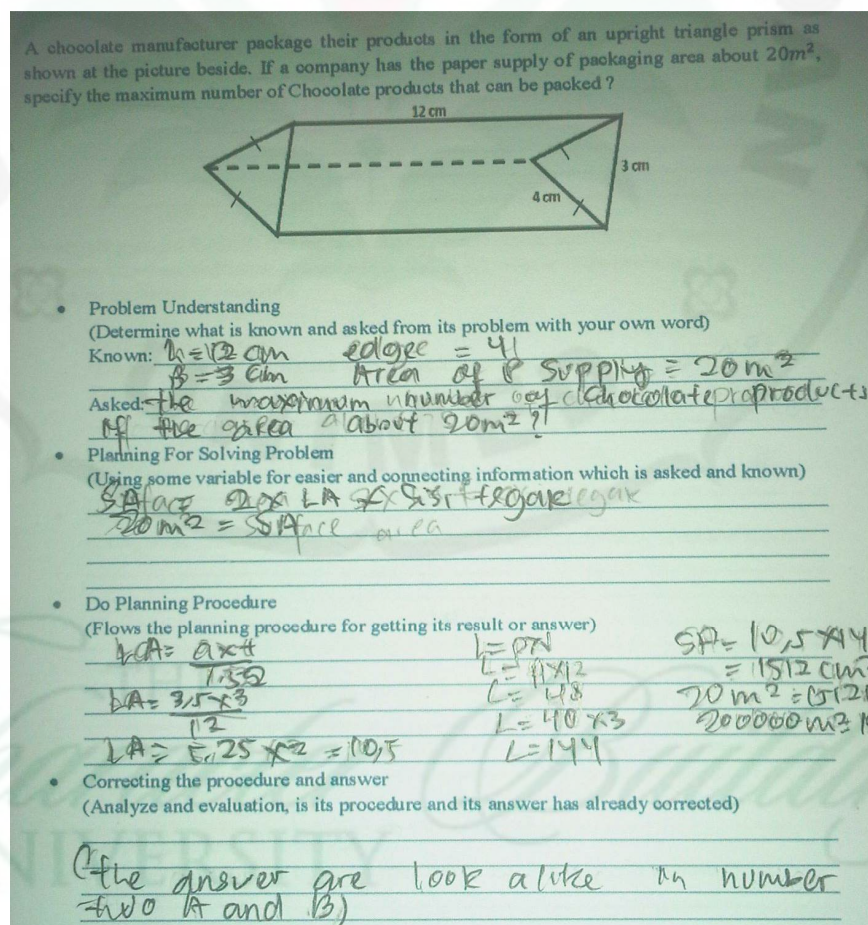 A chocolate manufacturer package their products in the form of an upright triangle prism as
shown at the picture beside. If a company has the paper supply of packaging area about 20m²,
specify the maximum number of Chocolate products that can be packed ?
12 cm
3 cm
4 cm
• Problem Understanding
(Determine what is known and asked from its problem with your own word)
Known: h=12 cm edgee = 4
B = 3 cm Area of P supply = 20 m²
Asked: the maximum number of chocolate products
if the area about 20m²?
• Planning For Solving Problem
(Using some variable for easier and connecting information which is asked and known)
2 x LA x tegak
20 m² = area
• Do Planning Procedure
(Flows the planning procedure for getting its result or answer)
LA= axt L= SA= 10,5 x
L= x12 = 1512 cm
LA= 3,5 x 3 L= 48 20 m² =
12 L= 48 x3 200000
LA= 5.25 x2 = 10,5 L=144
• Correcting the procedure and answer
(Analyze and evaluation, is its procedure and its answer has already corrected)
(the answer are look alike in number
two A and B)
UNIVERSITY